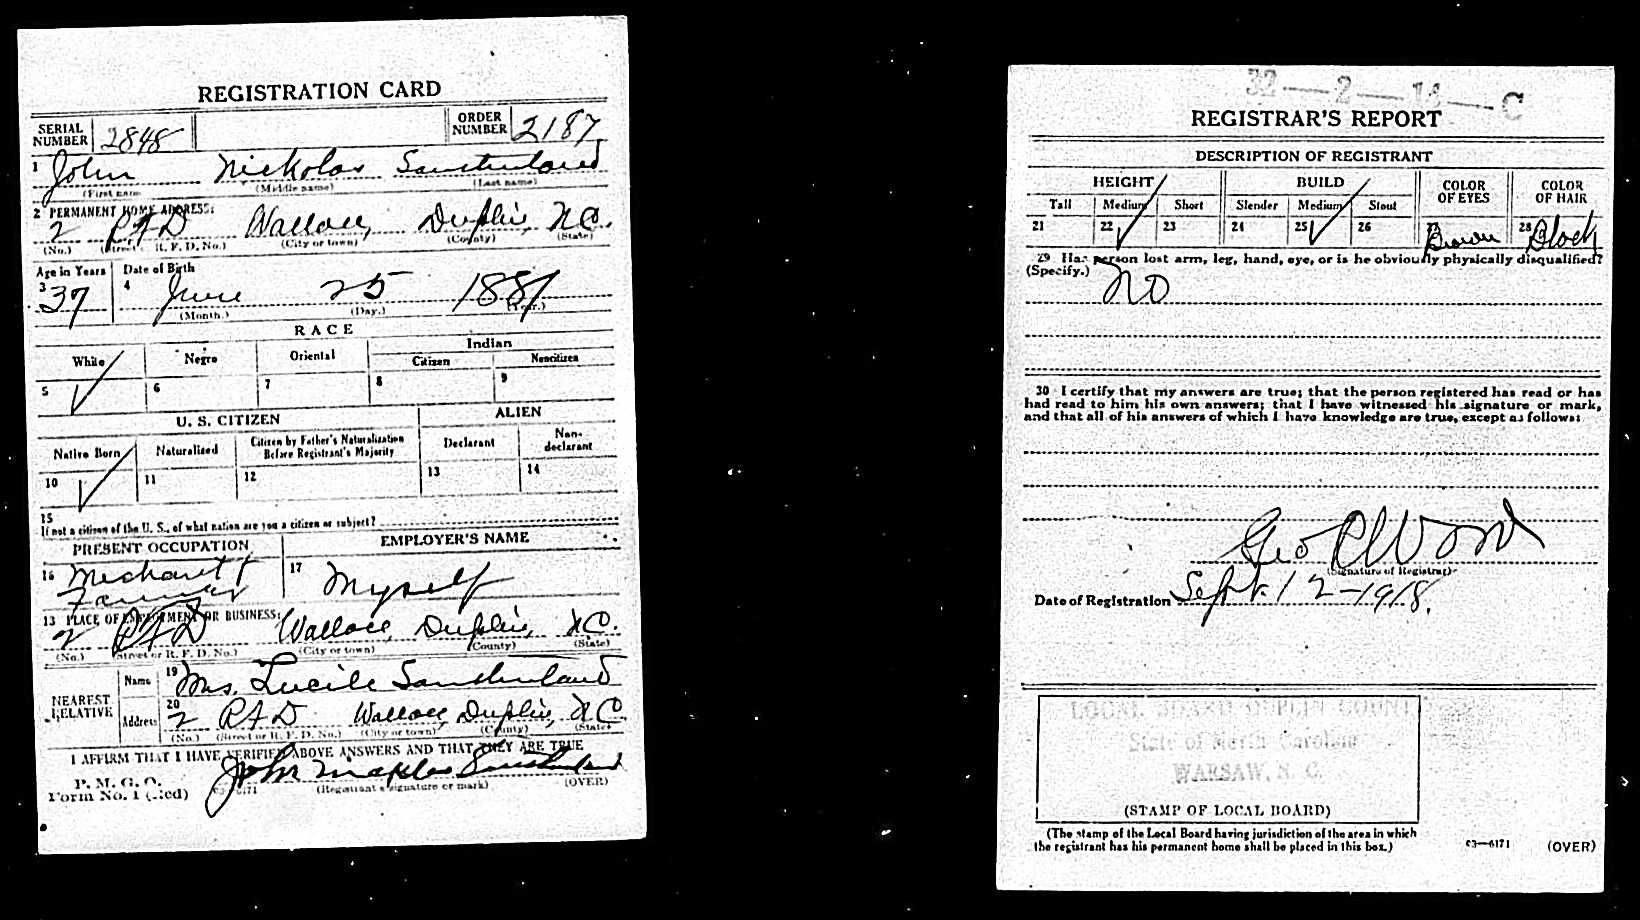 REGISTRATION CARD
SERIAL NUMBER 2848 ORDER NUMBER 2187
1 John Nickolas Southerland
(First name) (Middle name) (Last name)
2 PERMANENT HOME ADDRESS:
2 RFD Wallace, Duplin, NC.
(No.) (Street or R. F. D. No.) (City or town) (County) (State)
Age in Years Date of Birth
3 37 4 June 25 1881
(Month.) (Day.) (Year.)
RACE
White Negro Oriental Indian
Citizen Noncitizen
5 6 7 8 9
U. S. CITIZEN ALIEN
Native Born Naturalized Citizen by Father's Naturalization Before Registrant's Majority Declarant Non-declarant
10 11 12 13 14
15
If not a citizen of the U. S., of what nation are you a citizen or subject?
PRESENT OCCUPATION EMPLOYER'S NAME
16 Mechant + 17 Myself
Farmer
18 PLACE OF EMPLOYMENT OR BUSINESS:
2 RFD Wallace, Duplin, NC.
(No.) (Street or R. F. D. No.) (City or town) (County) (State)
NEAREST RELATIVE
Name 19 Mrs. Lucile Southerland
Address 20 2 RFD Wallace, Duplin, NC
(No.) (Street or R. F. D. No.) (City or town) (County) (State)
I AFFIRM THAT I HAVE VERIFIED ABOVE ANSWERS AND THAT THEY ARE TRUE
P. M. G. O.
Form No. 1 (Red) John Southerland
03—6171 (Registrant's signature or mark) (OVER)
32—2—18—C
REGISTRAR'S REPORT
DESCRIPTION OF REGISTRANT
HEIGHT BUILD COLOR OF EYES COLOR OF HAIR
Tall Medium Short Slender Medium Stout
21 22 23 24 25 26 27 Brown 28 Black
29 Has person lost arm, leg, hand, eye, or is he obviously physically disqualified?
(Specify.)
No
30 I certify that my answers are true; that the person registered has read or has
had read to him his own answers; that I have witnessed his signature or mark,
and that all of his answers of which I have knowledge are true, except as follows:
Geo
(Signature of Registrar)
Date of Registration Sept. 12-1918.
LOCAL BOARD DUPLIN COUNTY
State of North Carolina
WARSAW, N. C.
(STAMP OF LOCAL BOARD)
(The stamp of the Local Board having jurisdiction of the area in which
the registrant has his permanent home shall be placed in this box.)
03—6171 (OVER)